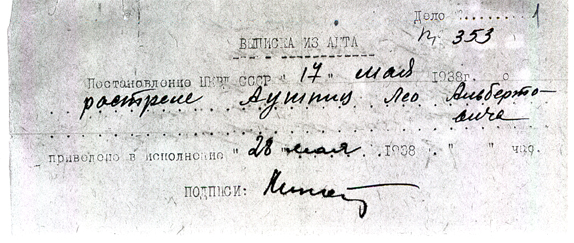 Дело №....... 1
Пр. 353
ВЫПИСКА ИЗ АКТА
Постановление НКВД СССР " 17 " мая 1938г. о
расстреле Аушпиц Лео Альберто-
вича
приведено в исполнение " 28 " мая 1938 " " час.
ПОДПИСИ: